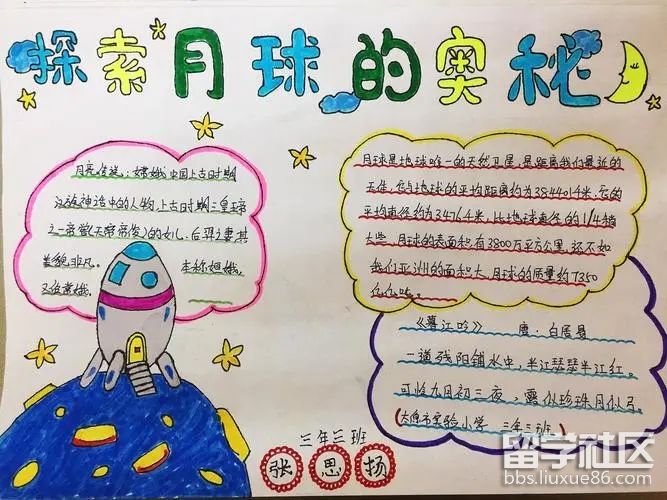 探索月球的奥秘
月亮传说，嫦娥中国上古时期
汉族神话中的人物，上古时期三皇五帝
之一帝喾(天帝帝俊)的女儿，后羿之妻其
美貌非凡。 本称姮娥，
又作常娥。
月球是地球唯一的天然卫星，是距离我们最近的
天体，它与地球的平均距离约为384401千米。它的
平均直径约为3476千米，比地球直径的1/4稍
大些，月球的表面积有3800万平方公里，还不如
我们亚洲的面积大。月球的质量约7350
亿亿吨。
《暮江吟》 唐·白居易
一道残阳铺水中，半江瑟瑟半江红。
可怜九月初三夜，露似珍珠月似弓。
实验小学 三年三班
三年三班
张思扬
留学社区
bbs.liuxue86.com